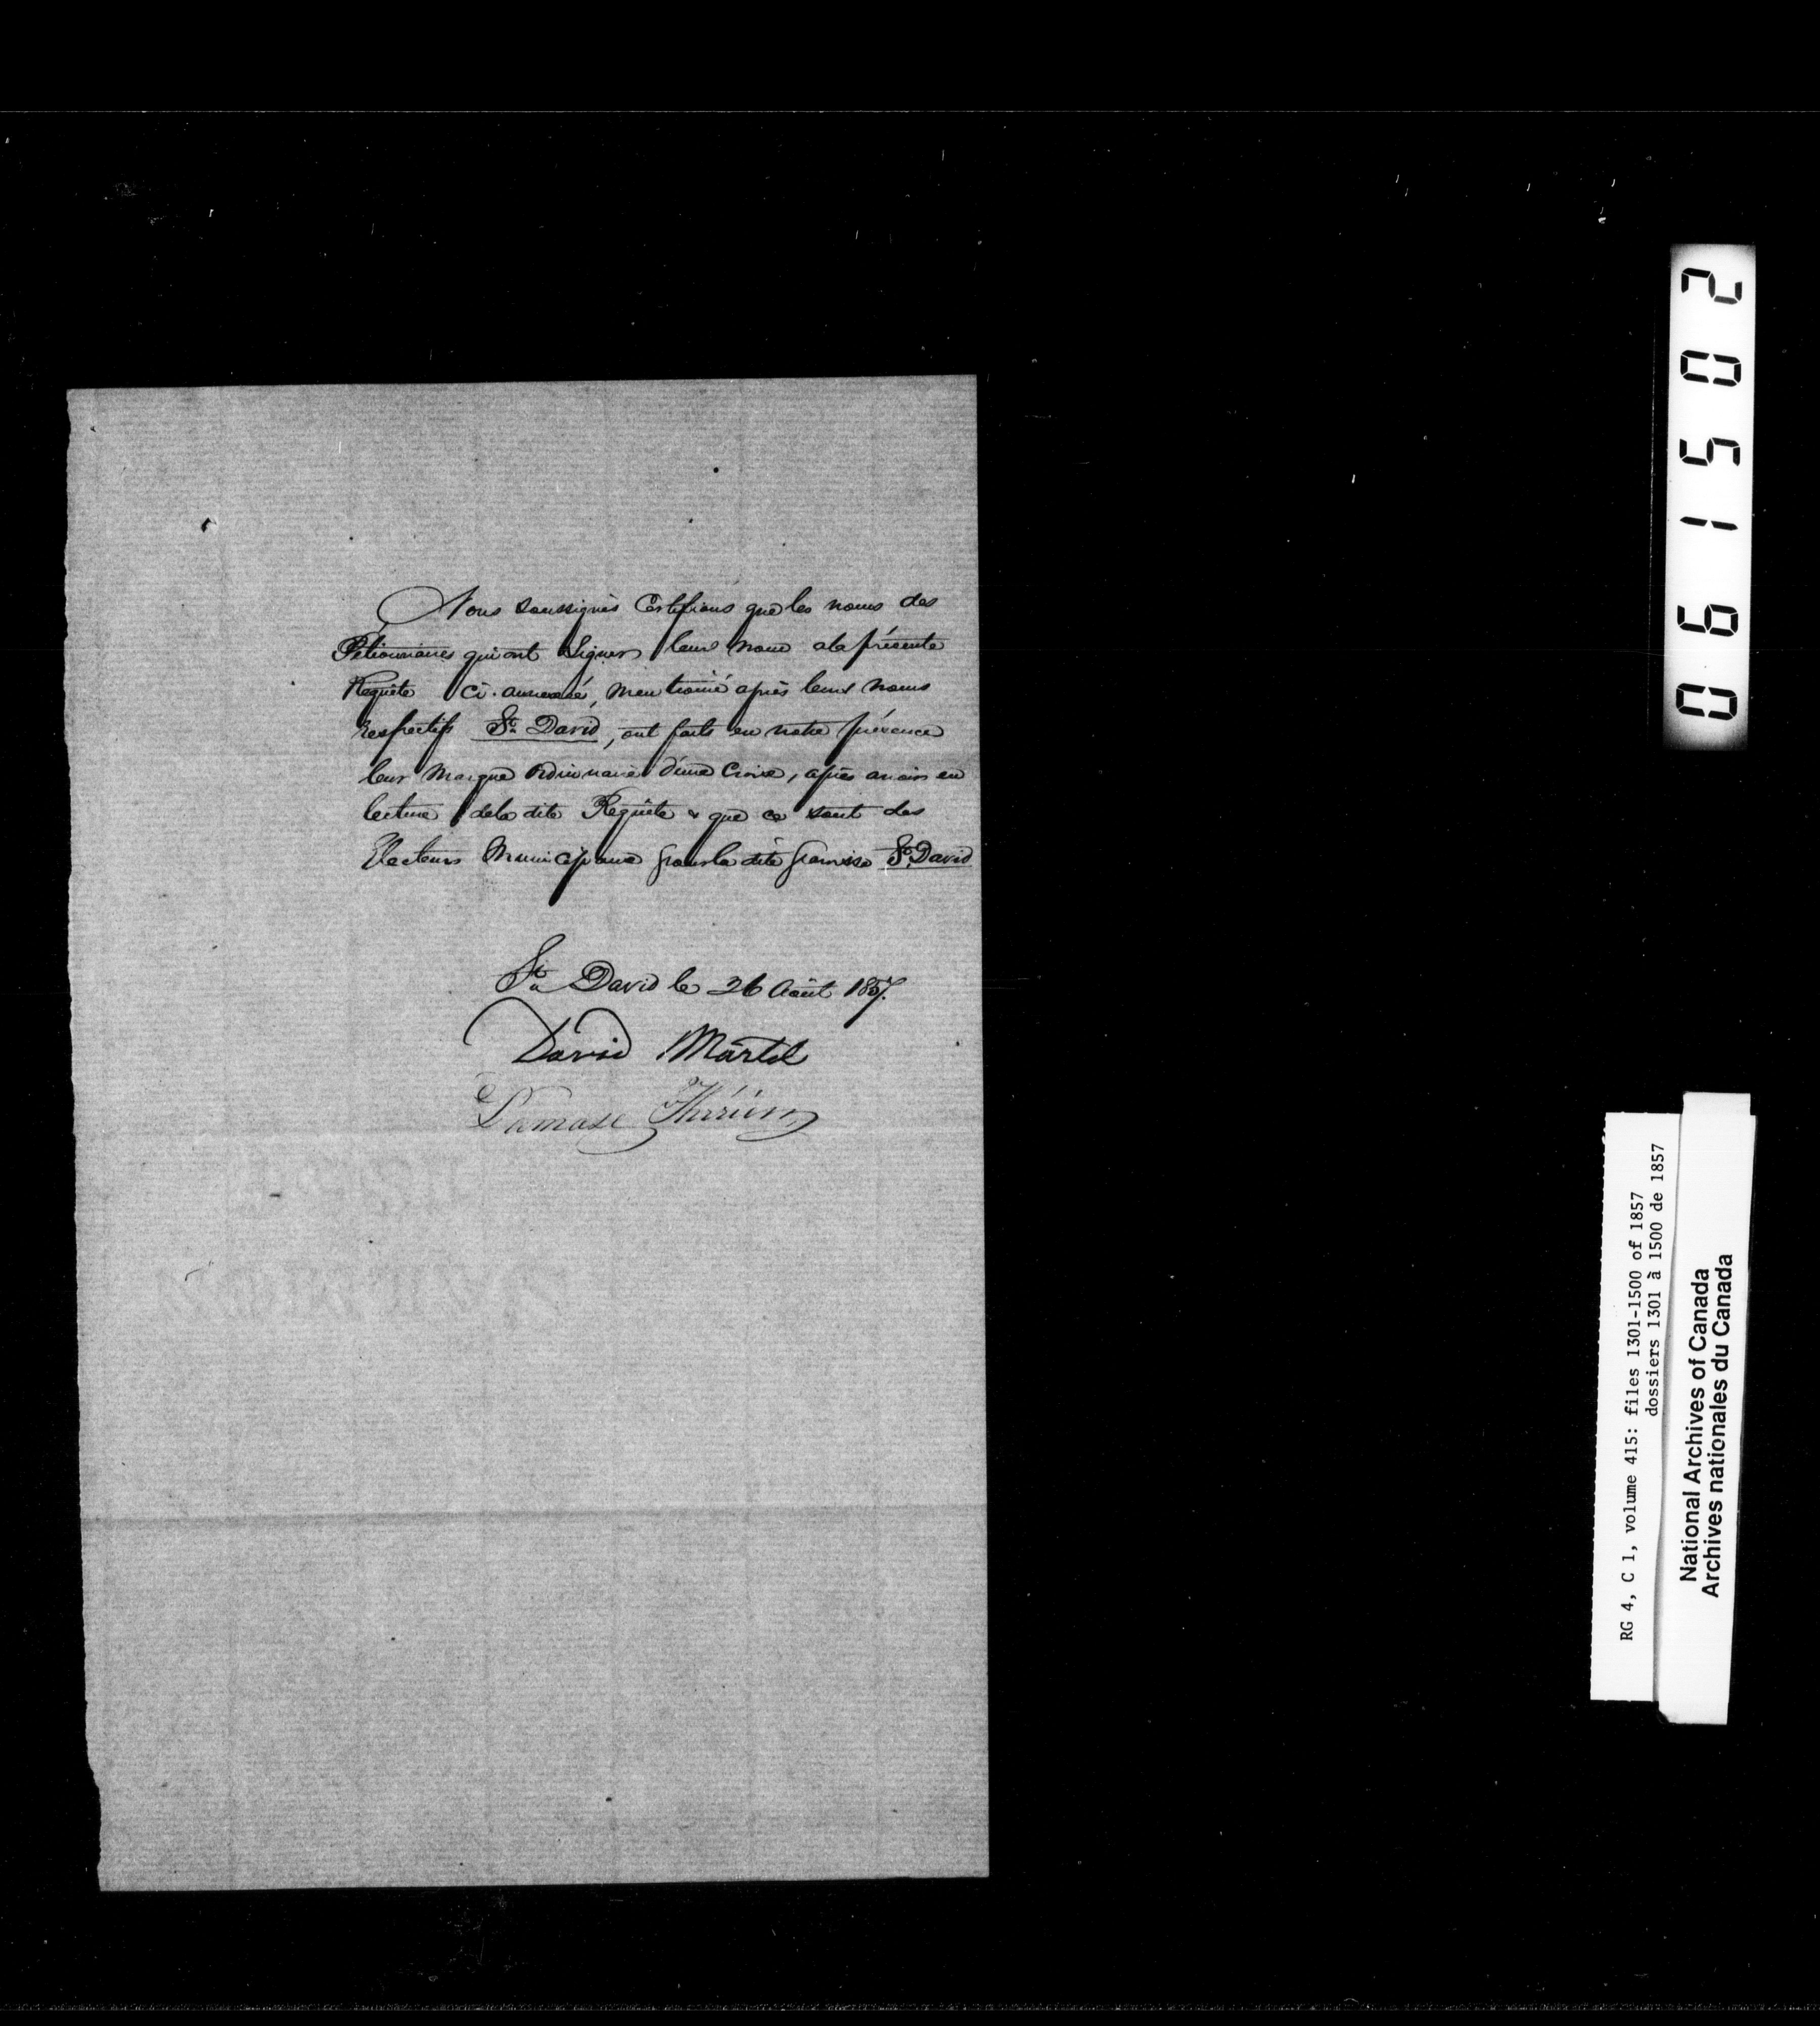 Nous soussignés Certifions que les noms des
Pétionnaires qui ont Signer leurs nom ala présente
Requête Ci-annexée, mentionné après leurs noms
respectifs St. David, ont faits en notre présence
leur marque ordinnaire d'une Croix, après avoir eu
lecture dela dite Requête & que ce sont des
Electeurs Municipaux pour la dite paroisse St. David
St. David le 26 Août 1857.
David Martel
Damase Thérien
061502
RG 4, C 1, volume 415: files 1301-1500 of 1857
dossiers 1301 à 1500 de 1857
National Archives of Canada
Archives nationales du Canada